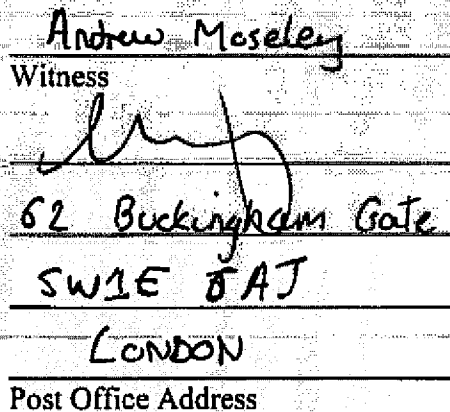 Andrew Moseley
Witness
62 Buckingham Gate
SW1E AJ
LONDON
Post Office Address